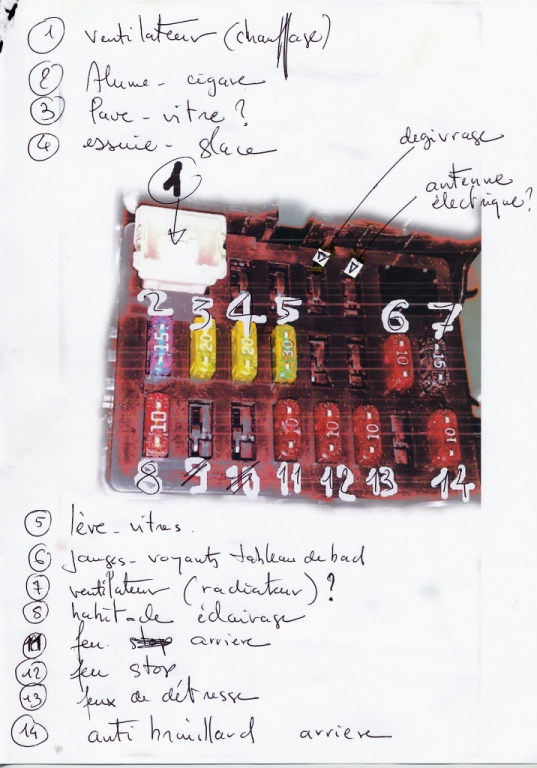 ① ventilateur (chauffage)
② Alume-cigare
③ lave-vitre ?
④ essuie-glace
degivrage
antenne
électrique ?
1
2 3 4 5 6 7
15 20 20 30 10 15
10 10 10 10 10
8 9 10 11 12 13 14
⑤ lève-vitres.
⑥ jauges-voyants tableau de bad
⑦ ventilateur (radiateur) ?
⑧ habitacle éclairage
⑪ feu stop arriere
⑫ feu stop
⑬ feux de détresse
⑭ anti brouillard arriere